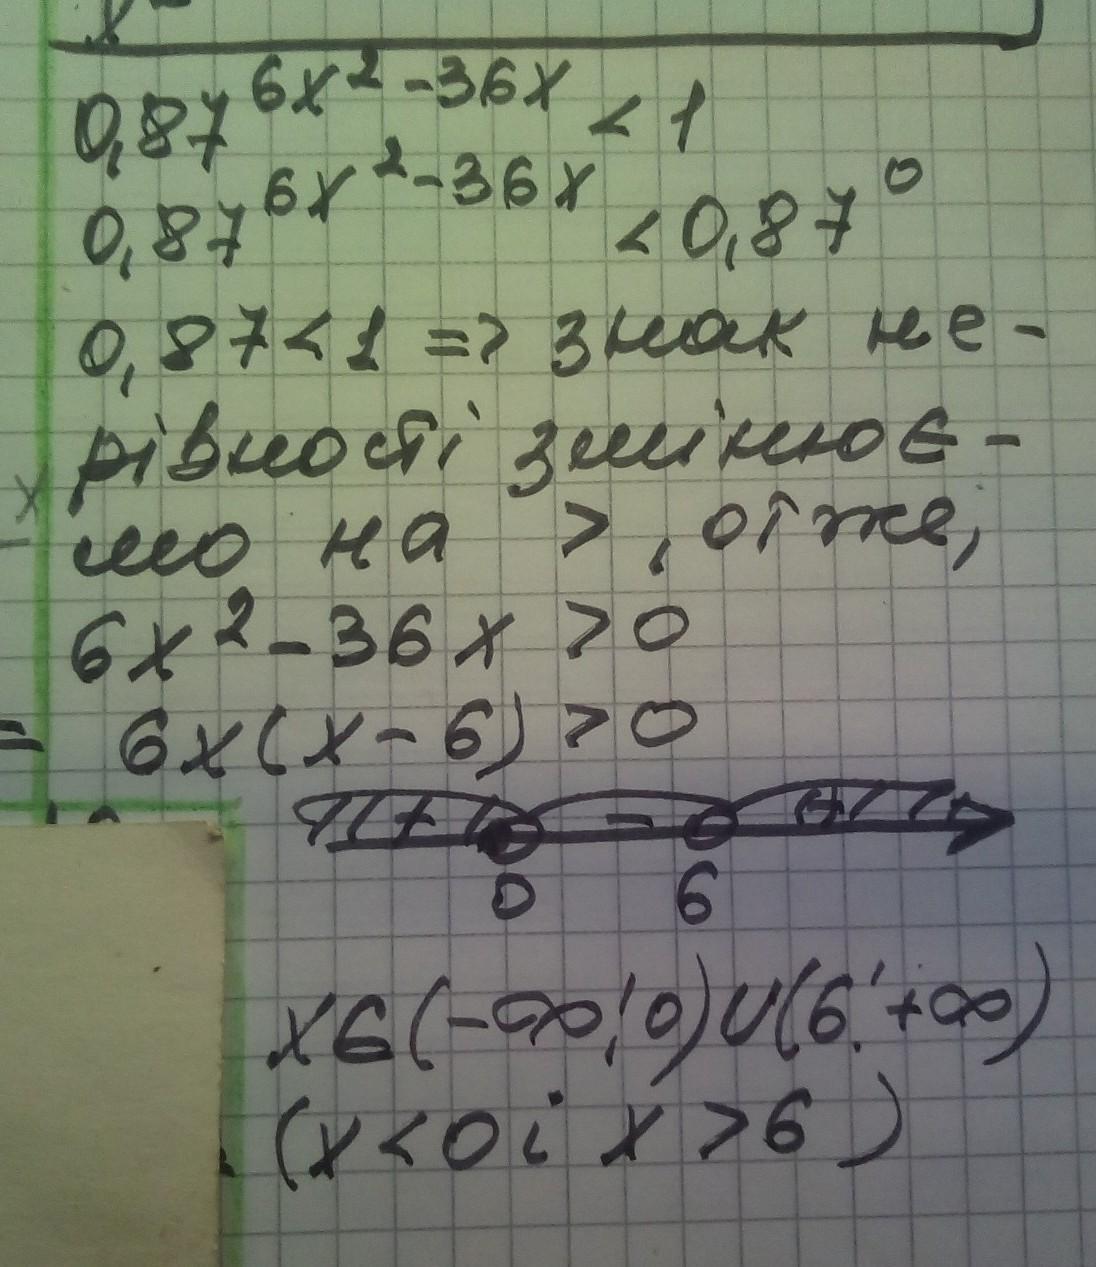 0,87^{6x^2-36x} < 1
0,87^{6x^2-36x} < 0,87^0
0,87<1 => знак не-
рівності змінює-
мо на >, отже,
6x^2-36x >0
= 6x(x-6)>0
+ - +
0 6
xє(-∞;0)∪(6;+∞)
(x<0 і x>6)